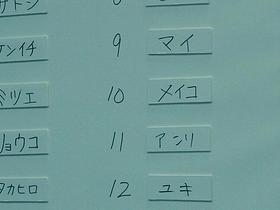 サトシ
ケンイチ 9 マイ
ミツエ 10 メイコ
リョウコ 11 アンリ
タカヒロ 12 ユキ